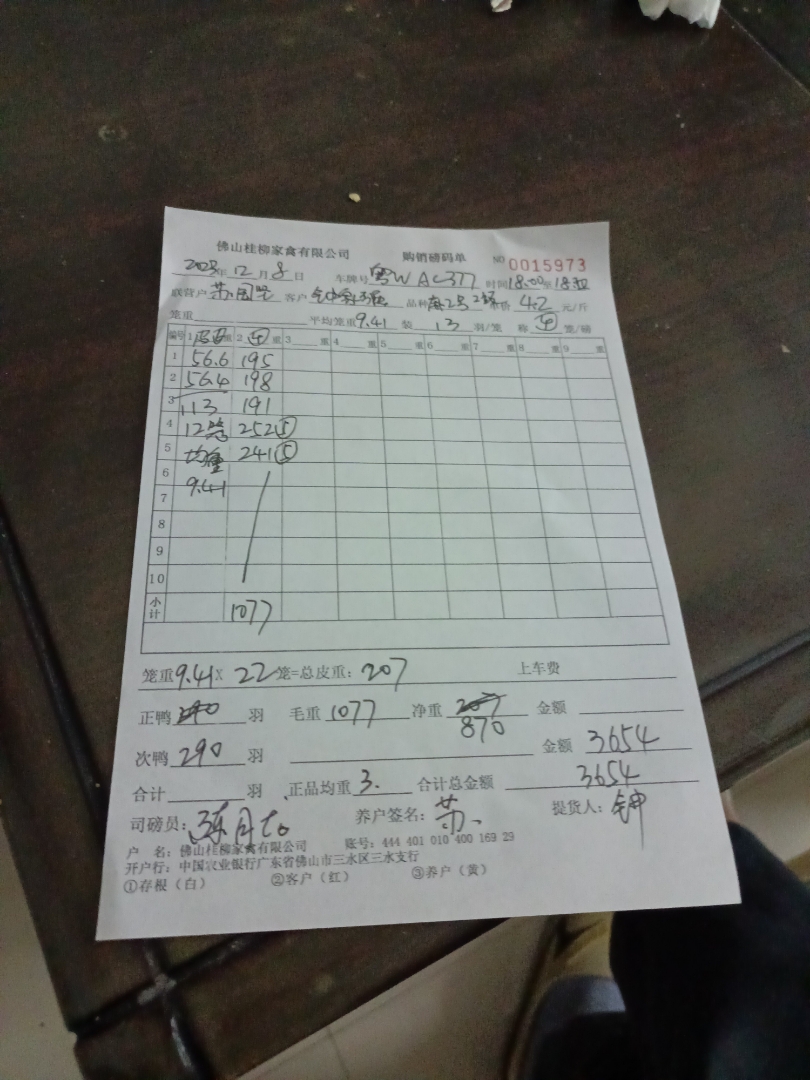 佛山桂柳家禽有限公司 购销磅码单 NO 0015973
2023年12月8日 车牌号 粤W AC377 时间18:00至18:30
联营户 苏 客户 品种 2号 单价 4.2 元/斤
笼重 平均笼重9.41 装 13 羽/笼 称 ④ 笼/磅
编号 1 皮重 重 2 ④ 重 3 重 4 重 5 重 6 重 7 重 8 重 9 重
1 56.6 195
2 56.4 198
3 113 191
4 12 252⑤
5 均重 241⑤
6 9.41
7
8
9
10
小计 1077
笼重9.41X 22笼=总皮重: 207 上车费
正鸭 羽 毛重 1077 净重 870 金额
次鸭 290 羽 金额 3654
合计 羽 正品均重 3. 合计总金额 3654
司磅员: 养户签名: 苏 提货人: 钟
户 名: 佛山桂柳家禽有限公司 账号: 444 401 010 400 169 29
开户行: 中国农业银行广东省佛山市三水区三水支行
①存根(白) ②客户(红) ③养户(黄)